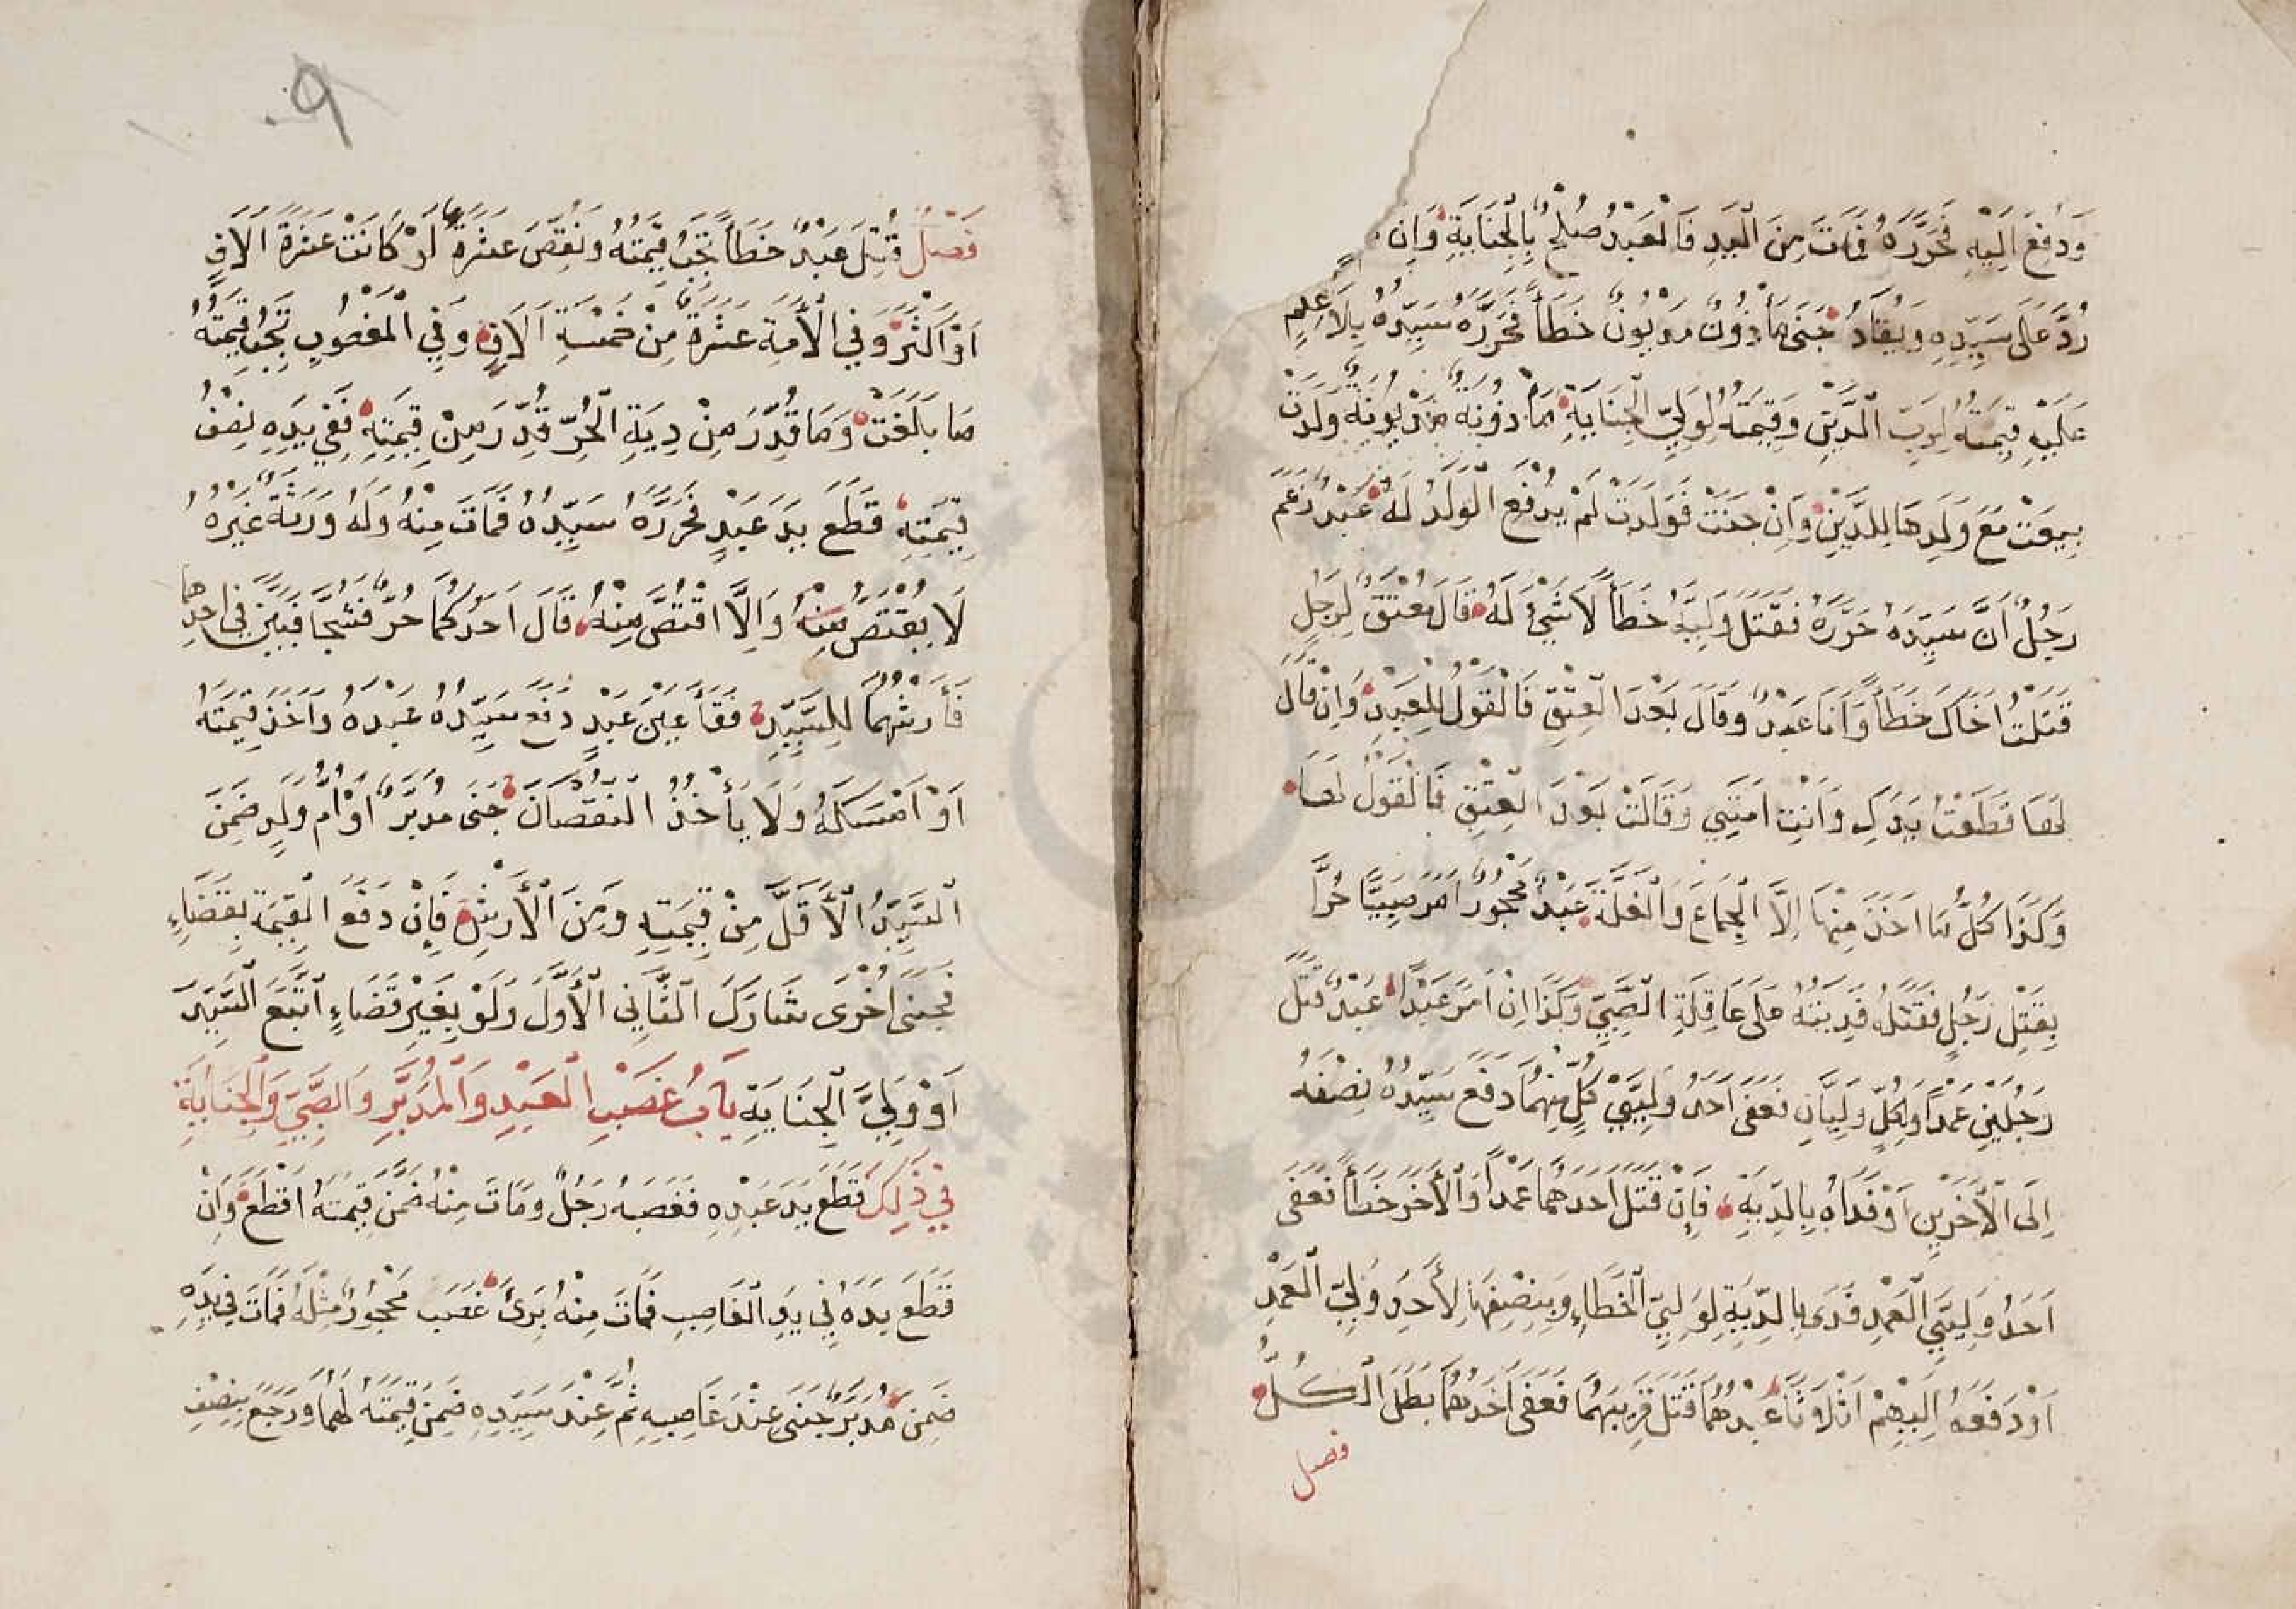 وَدُفِعَ اِلَيْهِ فَحَرَّرَهُ فَمَاتَ مِنَ الْيَدِ فَالْعَبْدُ صُلْحٌ بِالْجِنَايَةِ وَاِنْ
رُدَّ عَلَى سَيِّدِهِ وَيُقَادُ جَنَى مَأْذُونٌ مَدْيُونٌ خَطَأً فَحَرَّرَهُ سَيِّدُهُ بِلَا عِلْمٍ
عَلَيْهِ قِيمَتُهُ لِرَبِّ الدَّيْنِ وَقِيمَتُهُ لِوَلِيِّ الْجِنَايَةِ مَأْذُونَةٌ مَدْيُونَةٌ وَلَدَتْ
بِيعَتْ مَعَ وَلَدِهَا لِلدَّيْنِ وَاِنْ جَنَتْ فَوَلَدَتْ لَمْ يُدْفَعِ الْوَلَدُ لَهُ عَبْدٌ زَعَمَ
رَجُلٌ اَنَّ سَيِّدَهُ حَرَّرَهُ فَقَتَلَ وَلِيَّهُ خَطَأً لَا شَيْءَ لَهُ قَالَ مُعْتَقٌ لِرَجُلٍ
قَتَلْتُ اَخَاكَ خَطَأً وَاَنَا عَبْدٌ وَقَالَ بَعْدَ الْعِتْقِ فَالْقَوْلُ لِلْعَبْدِ وَاِنْ قَالَ
لَهَا قَطَعْتُ يَدَكِ وَاَنْتِ اَمَتِي وَقَالَتْ بَعْدَ الْعِتْقِ فَالْقَوْلُ لَهَا
وَكَذَا كُلُّ مَا اَخَذَ مِنْهَا اِلَّا الْجِمَاعَ وَالْغَلَّةَ عَبْدٌ مَحْجُورٌ اَمَرَ صَبِيًّا حُرًّا
بِقَتْلِ رَجُلٍ فَقَتَلَهُ فَدِيَتُهُ عَلَى عَاقِلَةِ الصَّبِيِّ وَكَذَا اِنْ اَمَرَ عَبْدًا عَبْدٌ قَتَلَ
رَجُلَيْنِ عَمْدًا وَلِكُلٍّ وَلِيَّانِ فَعَفَى اَحَدُ وَلِيَّيْ كُلٍّ مِنْهُمَا دَفَعَ سَيِّدُهُ نِصْفَهُ
اِلَى الْاٰخَرَيْنِ اَوْ فَدَاهُ بِالدِّيَةِ فَاِنْ قَتَلَ اَحَدَهُمَا عَمْدًا وَالْاٰخَرَ خَطَأً فَعَفَى
اَحَدُ وَلِيَّيِ الْعَمْدِ فَدَى بِالدِّيَةِ لِوَلِيَّيِ الْخَطَاءِ وَبِنِصْفِهَا لِأَحَدِ وَلِيَّيِ الْعَمْدِ
اَوْ دَفَعَهُ اِلَيْهِمْ اَثْلَاثًا عَبْدُهُمَا قَتَلَ قَرِيبَهُمَا فَعَفَى اَحَدُهُمَا بَطَلَ الْكُلُّ
فصل
٩٠
فَصْلٌ قُتِلَ عَبْدٌ خَطَأً تَجِبُ قِيمَتُهُ وَنُقِصَ عَشَرَةٌ لَوْ كَانَتْ عَشَرَةَ اٰلَافٍ
اَوْ اَكْثَرَ وَفِي الْأَمَةِ عَشَرَةٌ مِنْ خَمْسَةِ اٰلَافٍ وَفِي الْمَغْصُوبِ تَجِبُ قِيمَتُهُ
مَا بَلَغَتْ وَمَا قُدِّرَ مِنْ دِيَةِ الْحُرِّ قُدِّرَ مِنْ قِيمَتِهِ فَفِي يَدِهِ نِصْفُ
قِيمَتِهِ قَطَعَ يَدَ عَبْدٍ فَحَرَّرَهُ سَيِّدُهُ فَمَاتَ مِنْهُ وَلَهُ وَرَثَةٌ غَيْرُهُ
لَا يُقْتَصُّ مِنْهُ وَاِلَّا اقْتُصَّ مِنْهُ قَالَ اَحَدُكُمَا حُرٌّ فَشُجَّا فَبَيَّنَ فِي اَحَدِهِمَا
فَأَرْشُهُمَا لِلسَّيِّدِ فَقَأَ عَيْنَ عَبْدٍ دَفَعَ سَيِّدُهُ عَبْدَهُ وَاَخَذَ قِيمَتَهُ
اَوْ اَمْسَكَهُ وَلَا يَأْخُذُ النُّقْصَانَ جَنَى مُدَبَّرٌ اَوْ اُمُّ وَلَدٍ ضَمِنَ
السَّيِّدُ الْأَقَلَّ مِنْ قِيمَتِهِ وَمِنَ الْأَرْشِ فَاِنْ دَفَعَ الْقِيمَةَ بِقَضَاءٍ
فَجَنَى اُخْرَى شَارَكَ الثَّانِي الْأَوَّلَ وَلَوْ بِغَيْرِ قَضَاءٍ اتَّبَعَ السَّيِّدَ
اَوْ وَلِيَّ الْجِنَايَةِ بَابُ غَصْبِ الْعَبْدِ وَالْمُدَبَّرِ وَالصَّبِيِّ وَالْجِنَايَةِ
فِي ذٰلِكَ قَطَعَ يَدَ عَبْدِهِ فَغَصَبَهُ رَجُلٌ وَمَاتَ مِنْهُ ضَمِنَ قِيمَتَهُ اَقْطَعَ وَاِنْ
قَطَعَ يَدَهُ فِي يَدِ الْغَاصِبِ فَمَاتَ مِنْهُ بَرِئَ غَصَبَ مَحْجُورٌ مِثْلَهُ فَمَاتَ فِي يَدِهِ
ضَمِنَ مُدَبَّرٌ جَنَى عِنْدَ غَاصِبِهِ ثُمَّ عِنْدَ سَيِّدِهِ ضَمِنَ قِيمَتَهُ لَهُمَا وَرَجَعَ بِنِصْفِ